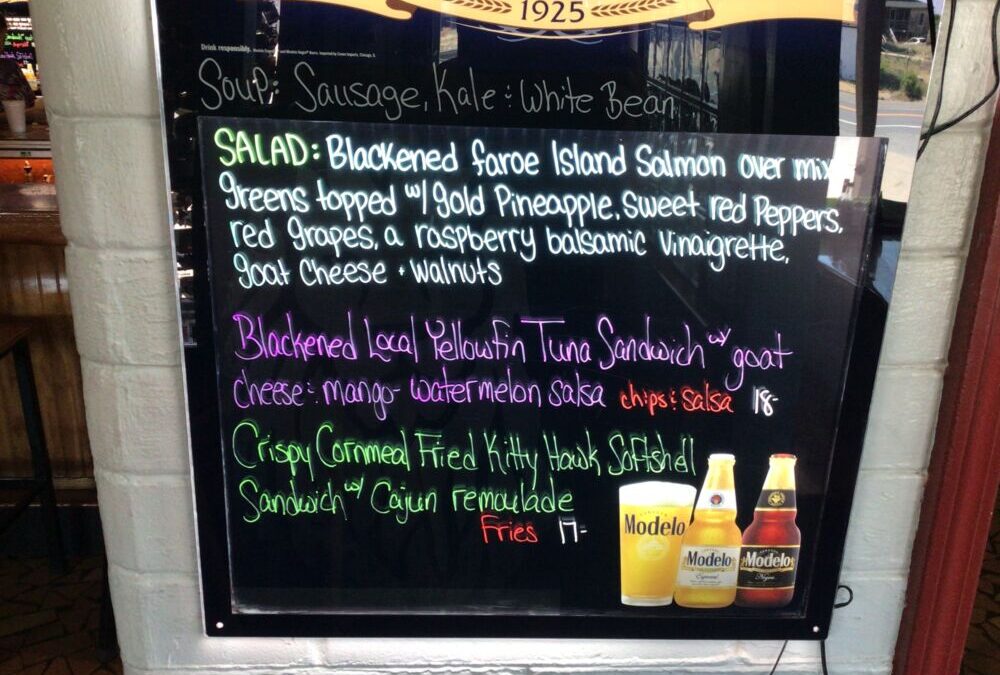 1925
Drink responsibly.
Soup: Sausage, Kale : White Bean
SALAD: Blackened faroe Island Salmon over mix
greens topped w/ gold Pineapple, sweet red Peppers,
red grapes, a raspberry balsamic vinaigrette,
goat cheese + walnuts
Blackened Local Yellowfin Tuna Sandwich w/ goat
cheese : mango-watermelon salsa chips : salsa 18-
Crispy Cornmeal Fried Kitty Hawk Softshell
Sandwich w/ Cajun remoulade
Fries 17-
Modelo
Modelo
Especial
Modelo
Negra